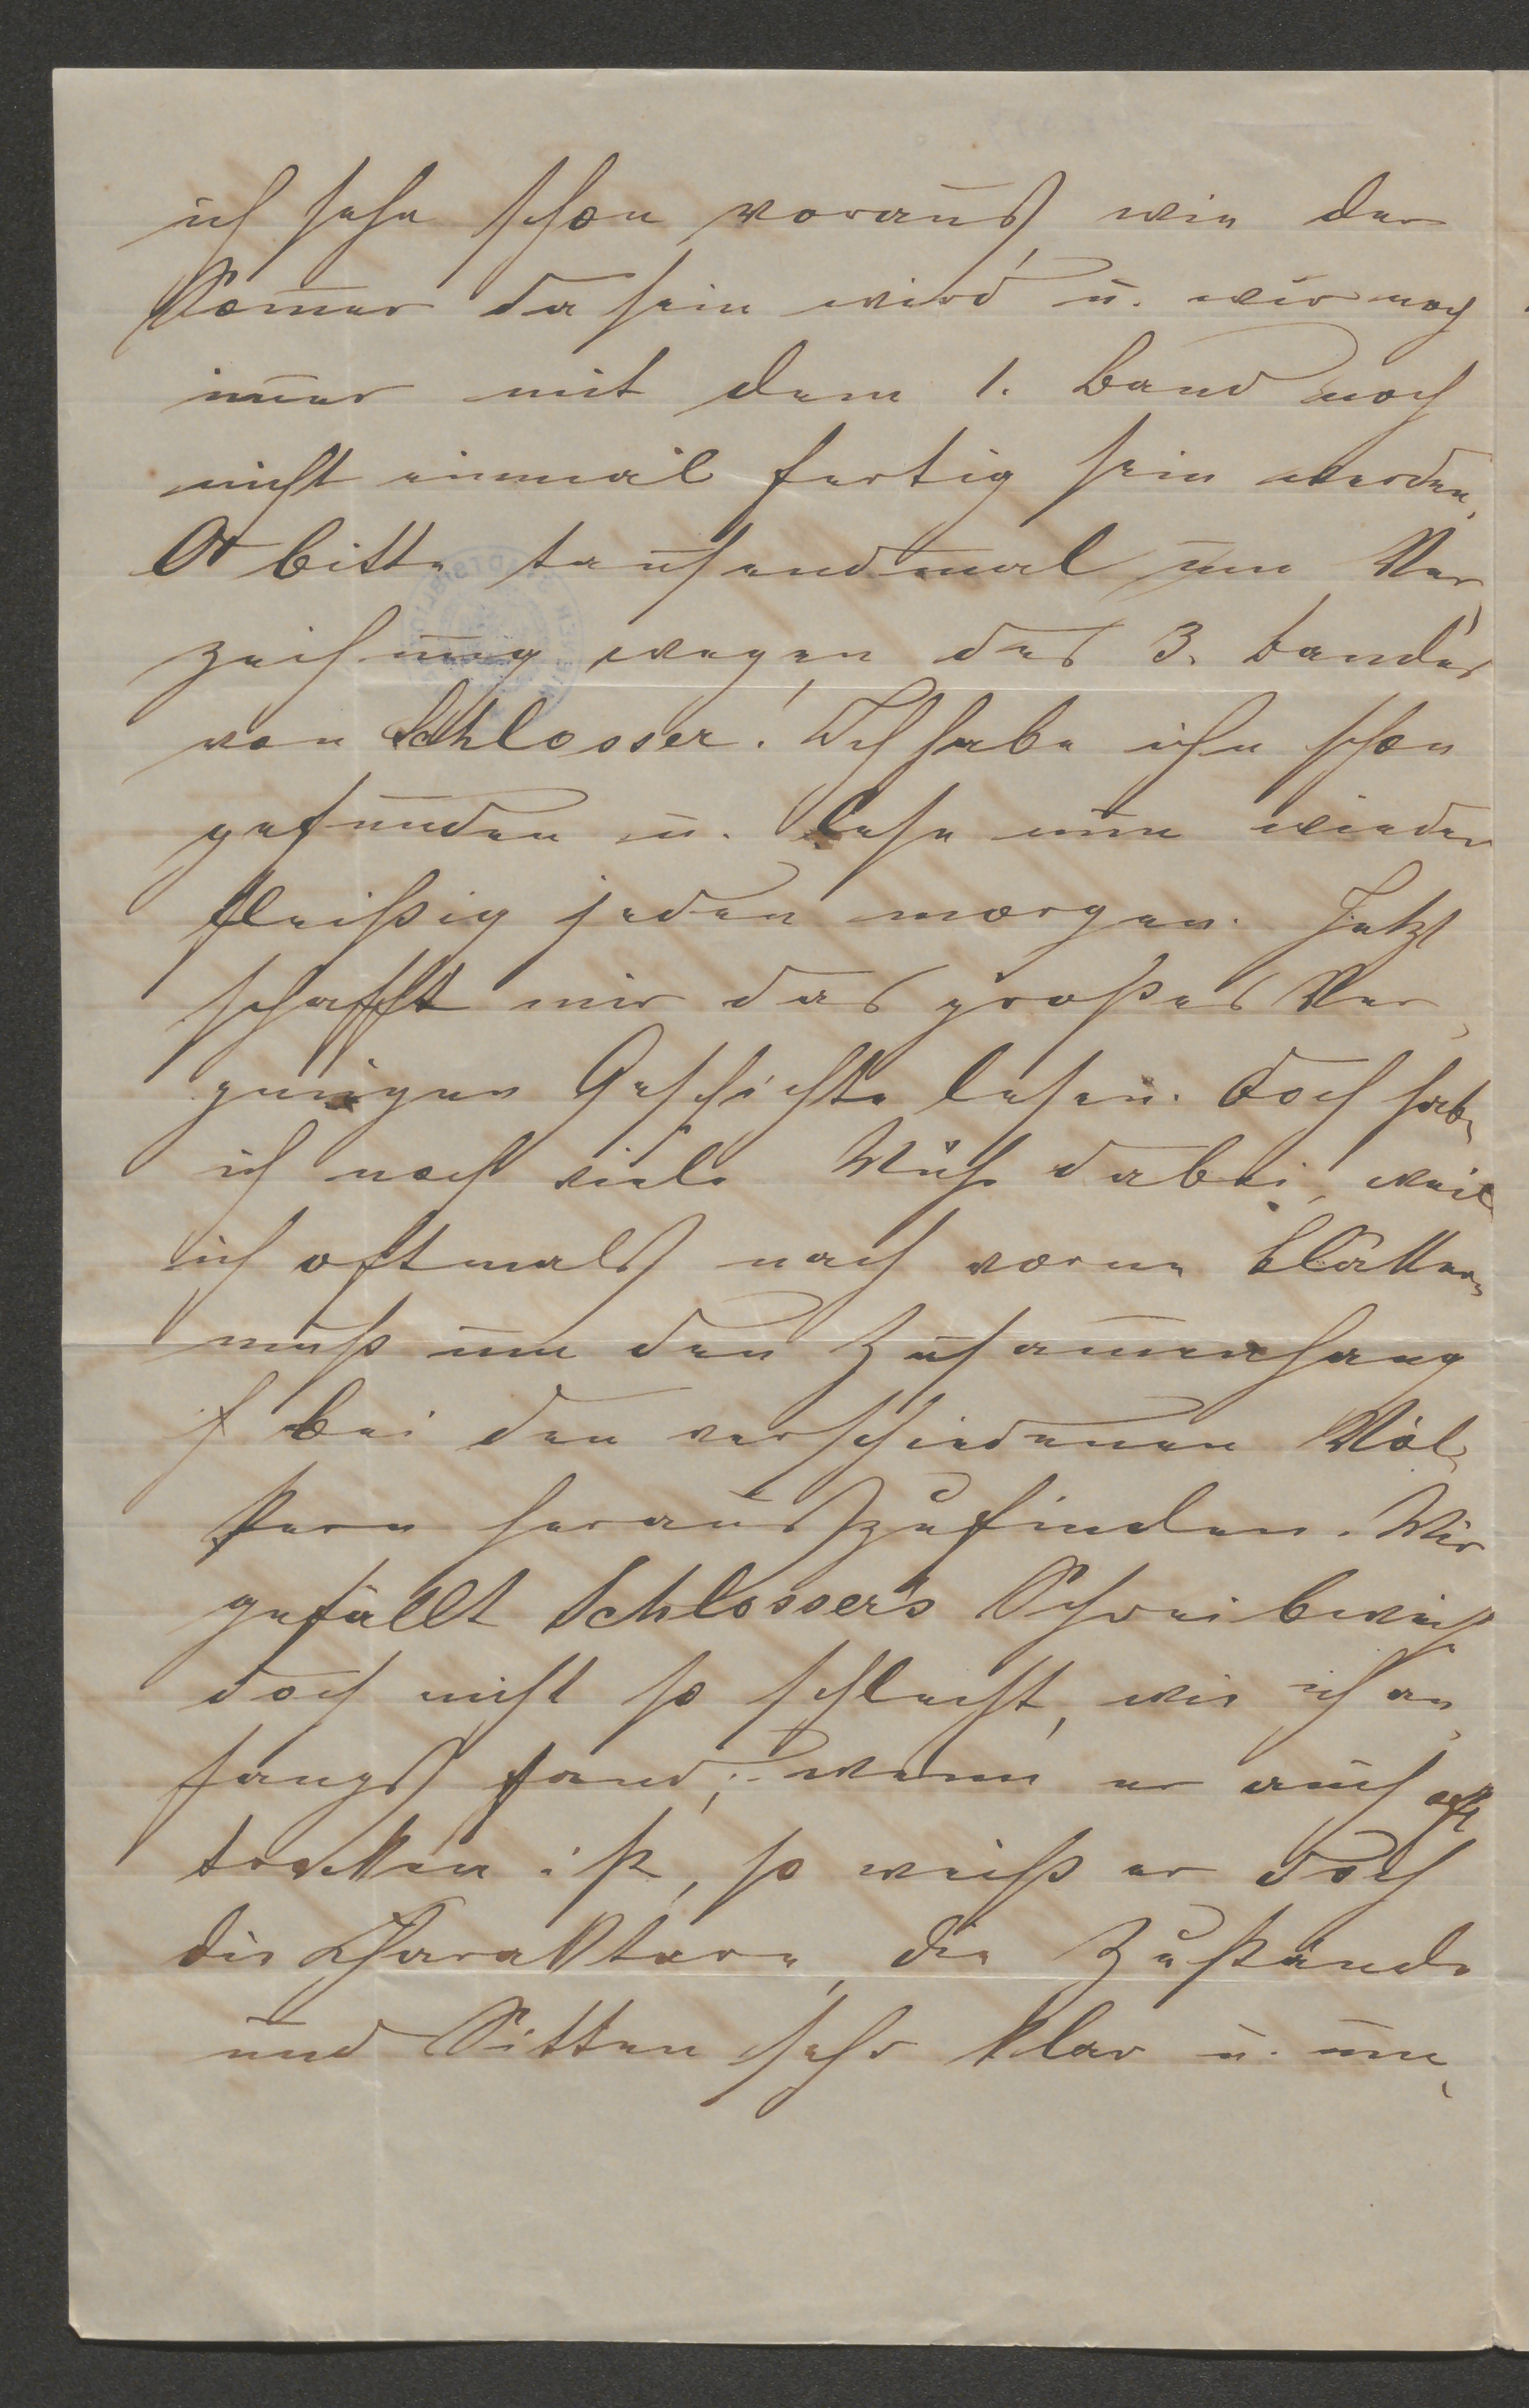 ich sehe schon voraus, wie der
Som̄er da sein wird u. wir noch
im̄er mit dem 1. Band noch
nicht einmal fertig sein werden,
O bitte tausendmal um Ver-
zeihung wegen des 3. Bandes
von Schlosser! Ich habe ihn schon
gefunden u. lese nun wieder
fleißig jeden morgen. Jetzt
schafft mir das großes Ver-
gnügen Geschichte lesen. Doch habe
ich noch viele Mühe dabei, weil
ich oftmals nach vorne blättern
muß um den Zusam̄enhang
bei den verschiedenen Völ-
kern herauszufinden. Mir
gefällt Schlosser's Schreibweise
doch nicht so schlecht, wie ich an-
fangs fand; wenn er auch oft
trocken ist, so weiß er doch
die Charaktere, die Zustände
und Sitten sehr klar u. um-